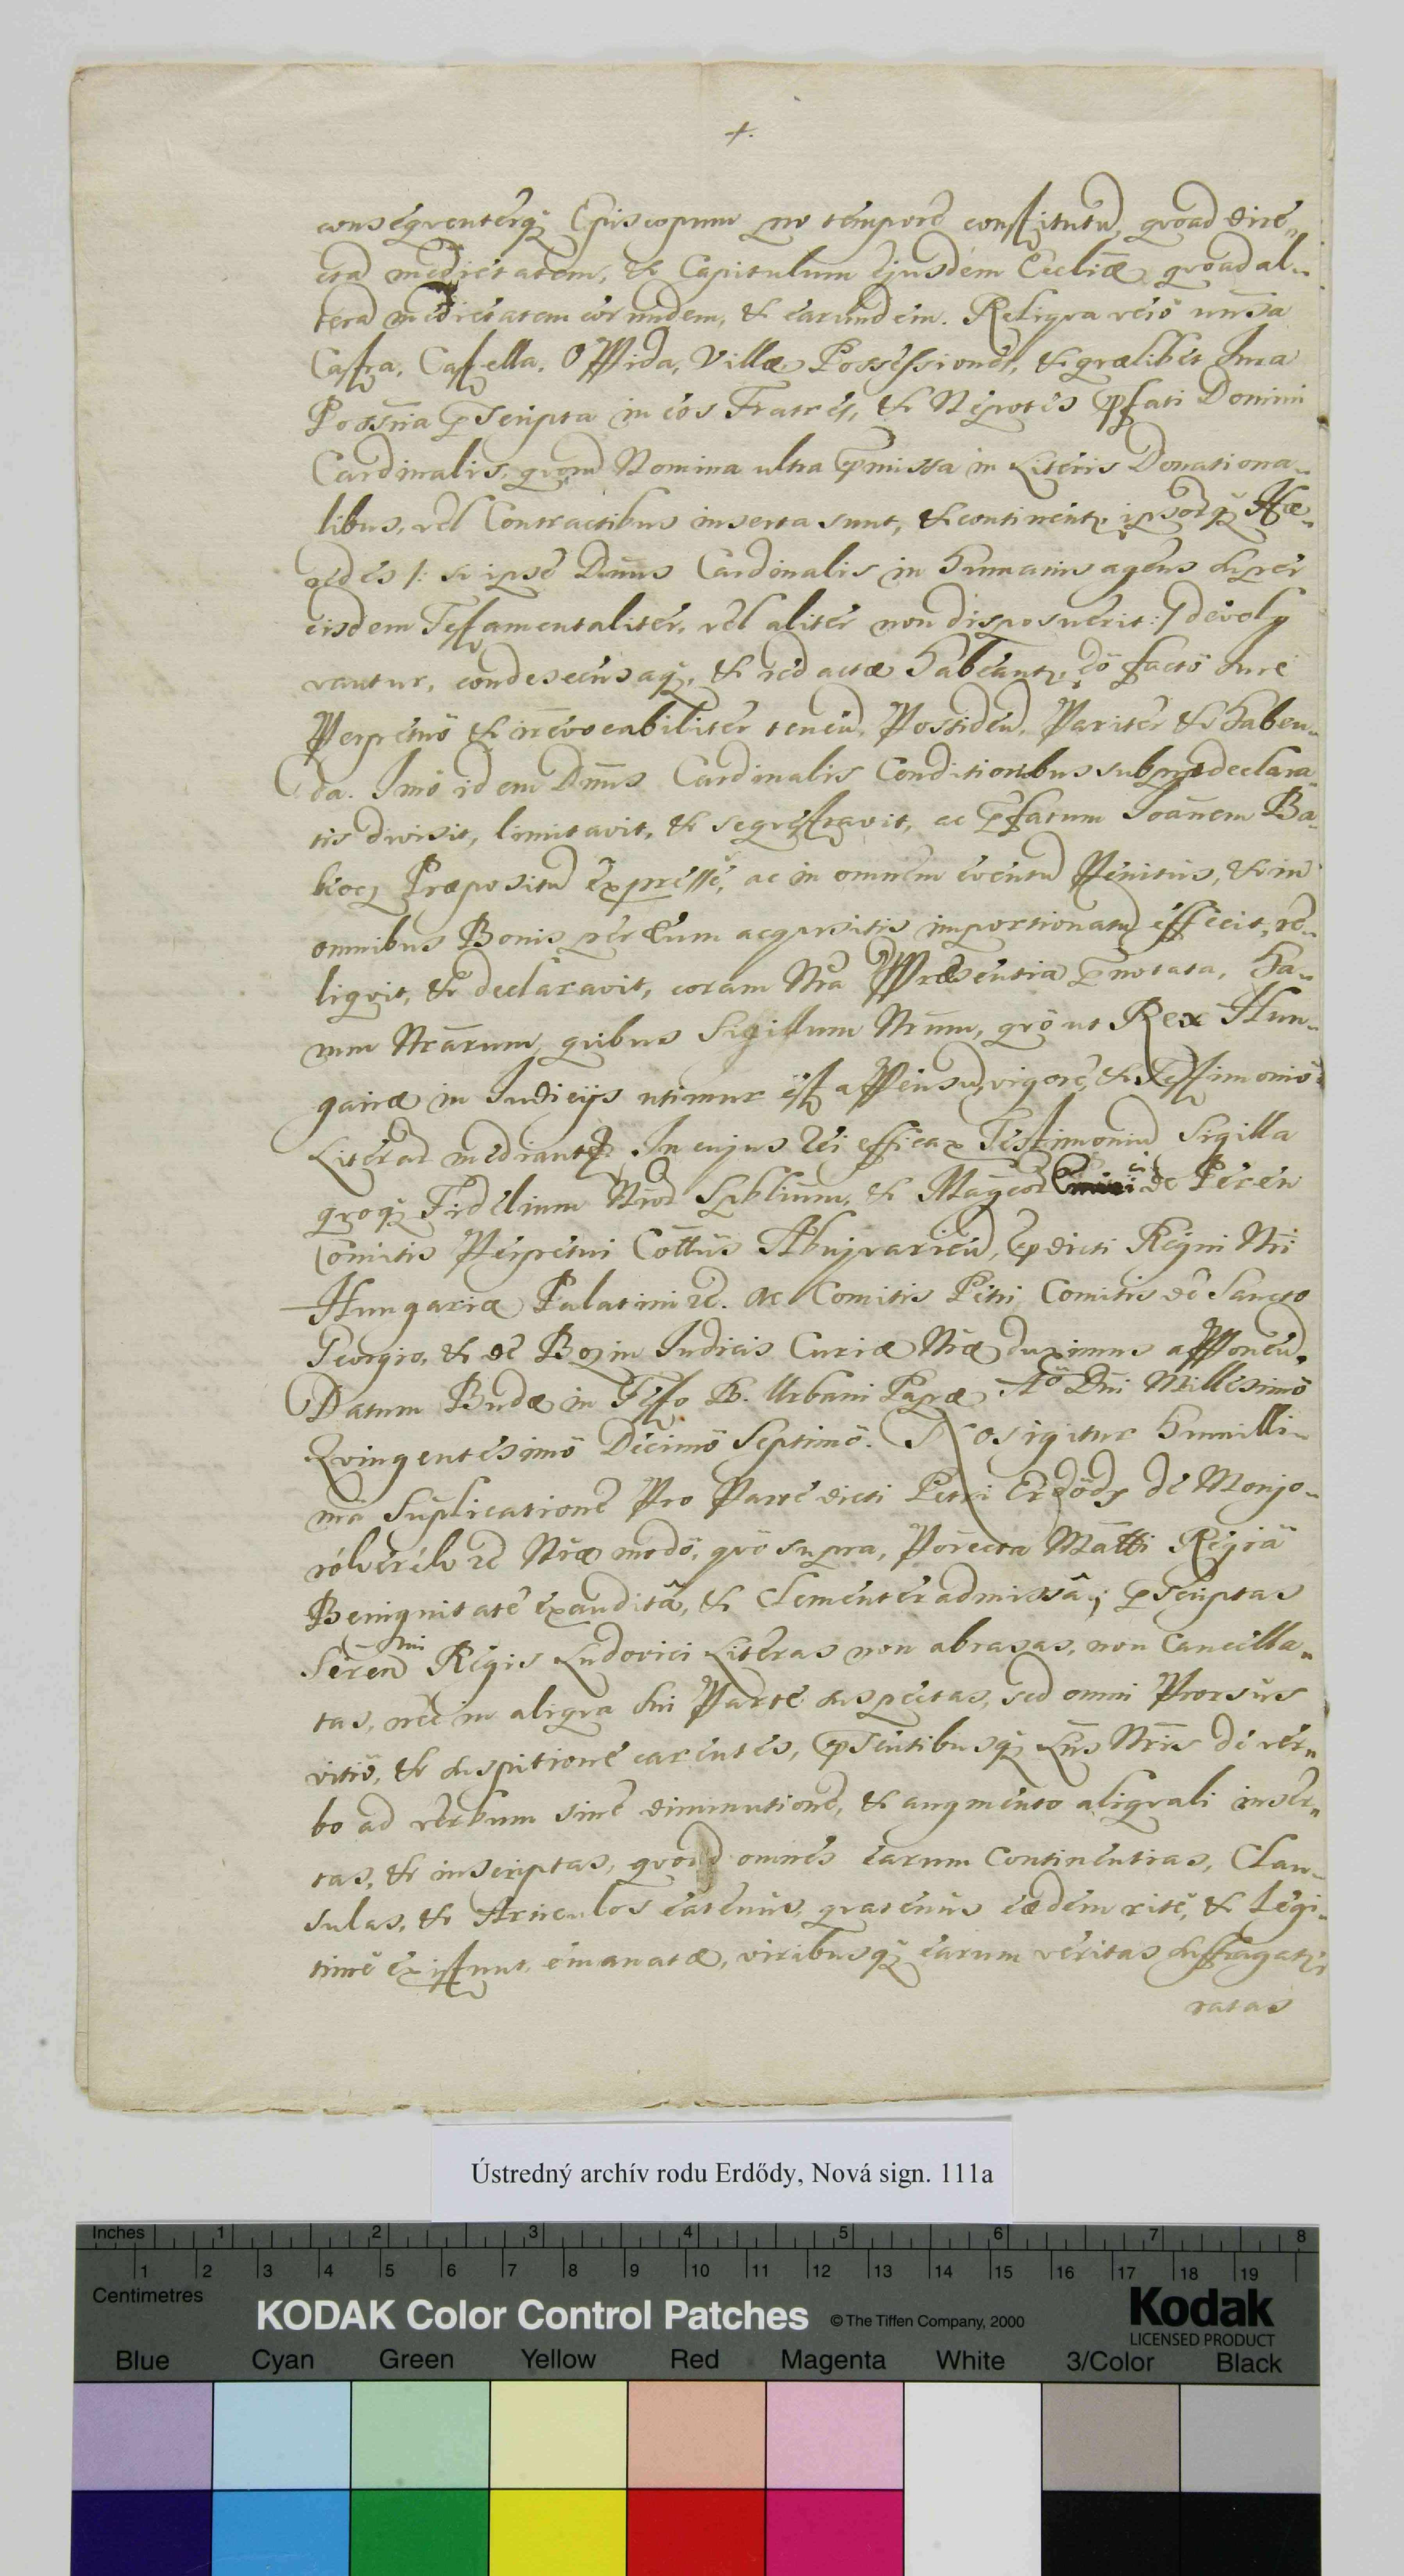 +.
conseqventerq₃ Episcopum pro tempore constitutū, qvoad dire„
ctā medietatem, & Capitulum Ejusdem Eccliæ, qvoad al„
terā medietatem eorundem, & earundem. Reliqva verò univsa
Castra, Castella, Oppida, Villæ, Possessiones, & qvælibet Jura
Possria p̄scripta in eos Fratres, & Nepotes p̄fati Domini
Cardinalis, qvorū Nomina ultra p̄missa in Literis Donationa„
libus, vel Contractibus inserta sunt, & continentr, ipsorūq₃ Hæ„
redes /: si ipse Dnus Cardinalis in humanis agens super
eisdem Testamentaliter, vel aliter non disposuerit :/ devolv
vantur, condescensaq₃, & redactæ habeantr, eò factò Jure
Perpetuò & irrevocabiliter tenend, Possidend, Pariter & haben„
da. Imò idem Dnus Cardinalis Conditionibus sub prædeclara
tis divisit, limitavit, & seqvestravit, ac p̄fatum Joanem Ba„
kócz Præpositū expressè, ac in omnem eventū Penitus, & in
omnibus Bonis per Eum acqvisitis importionatū effecit, re„
liqvit, & declaravit, coram Nrā Præsentia p̄notata, Ha„
rum Nrarum, qvibus Sigillum Nrum, qvò ut Rex Hun„
gariæ in Judicijs utimur est appensū, vigore, & Testimoniò
Literarū mediante. In cujus rei efficax Testimoniū Sigilla
qvoq₃ Fidelium Nrorū Spblium, & Magcorū Emerici de Peren
Comitis Perpetui Cottus Abujvarien, p̄dicti Regni Nri
Hungariæ Palatini &c. Ac Comitis Petri Comitis de Sancto
Georgio, & de Bozin Judicis Curiæ Nræ duximus apponend.
Datum Budæ in Festo B. Urbani Papæ Aō Dni Millesimò
Qvingentesimò Decimò Septimò. Nos igitur humilli„
mà Suplicatione Pro Parte dicti Petri Erdődy de Monyo„
rókerék &c Nræ modò, qvò supra, Porrecta Matti Regià
Benignitate exauditâ, & Clementer admissâ; p̄scriptas
Seren mi Regis Ludovici Literas non abrasas, non Cancella„
tas, nec in aliqva sui Parte suspectas, sed omni Prorsus
vitiò, & suspitione carentes, p̄sentibusq₃ Lris Nris de ver„
bo ad verbum sine diminutione, & augmento aliqvali inser„
tas, & inscriptas, qvoad omnes earum Continentias, Clau„
sulas, & Articulos eatenùs, qvatenùs eædem ritè, & Legi„
timè existunt emanatæ, viribusq₃ earum veritas suffragatr,
ratas
Ústredný archív rodu Erdődy, Nová sign. 111a
Inches 1 2 3 4 5 6 7 8
1 2 3 4 5 6 7 8 9 10 11 12 13 14 15 16 17 18 19
Centimetres
KODAK Color Control Patches © The Tiffen Company, 2000 Kodak
LICENSED PRODUCT
Blue Cyan Green Yellow Red Magenta White 3/Color Black